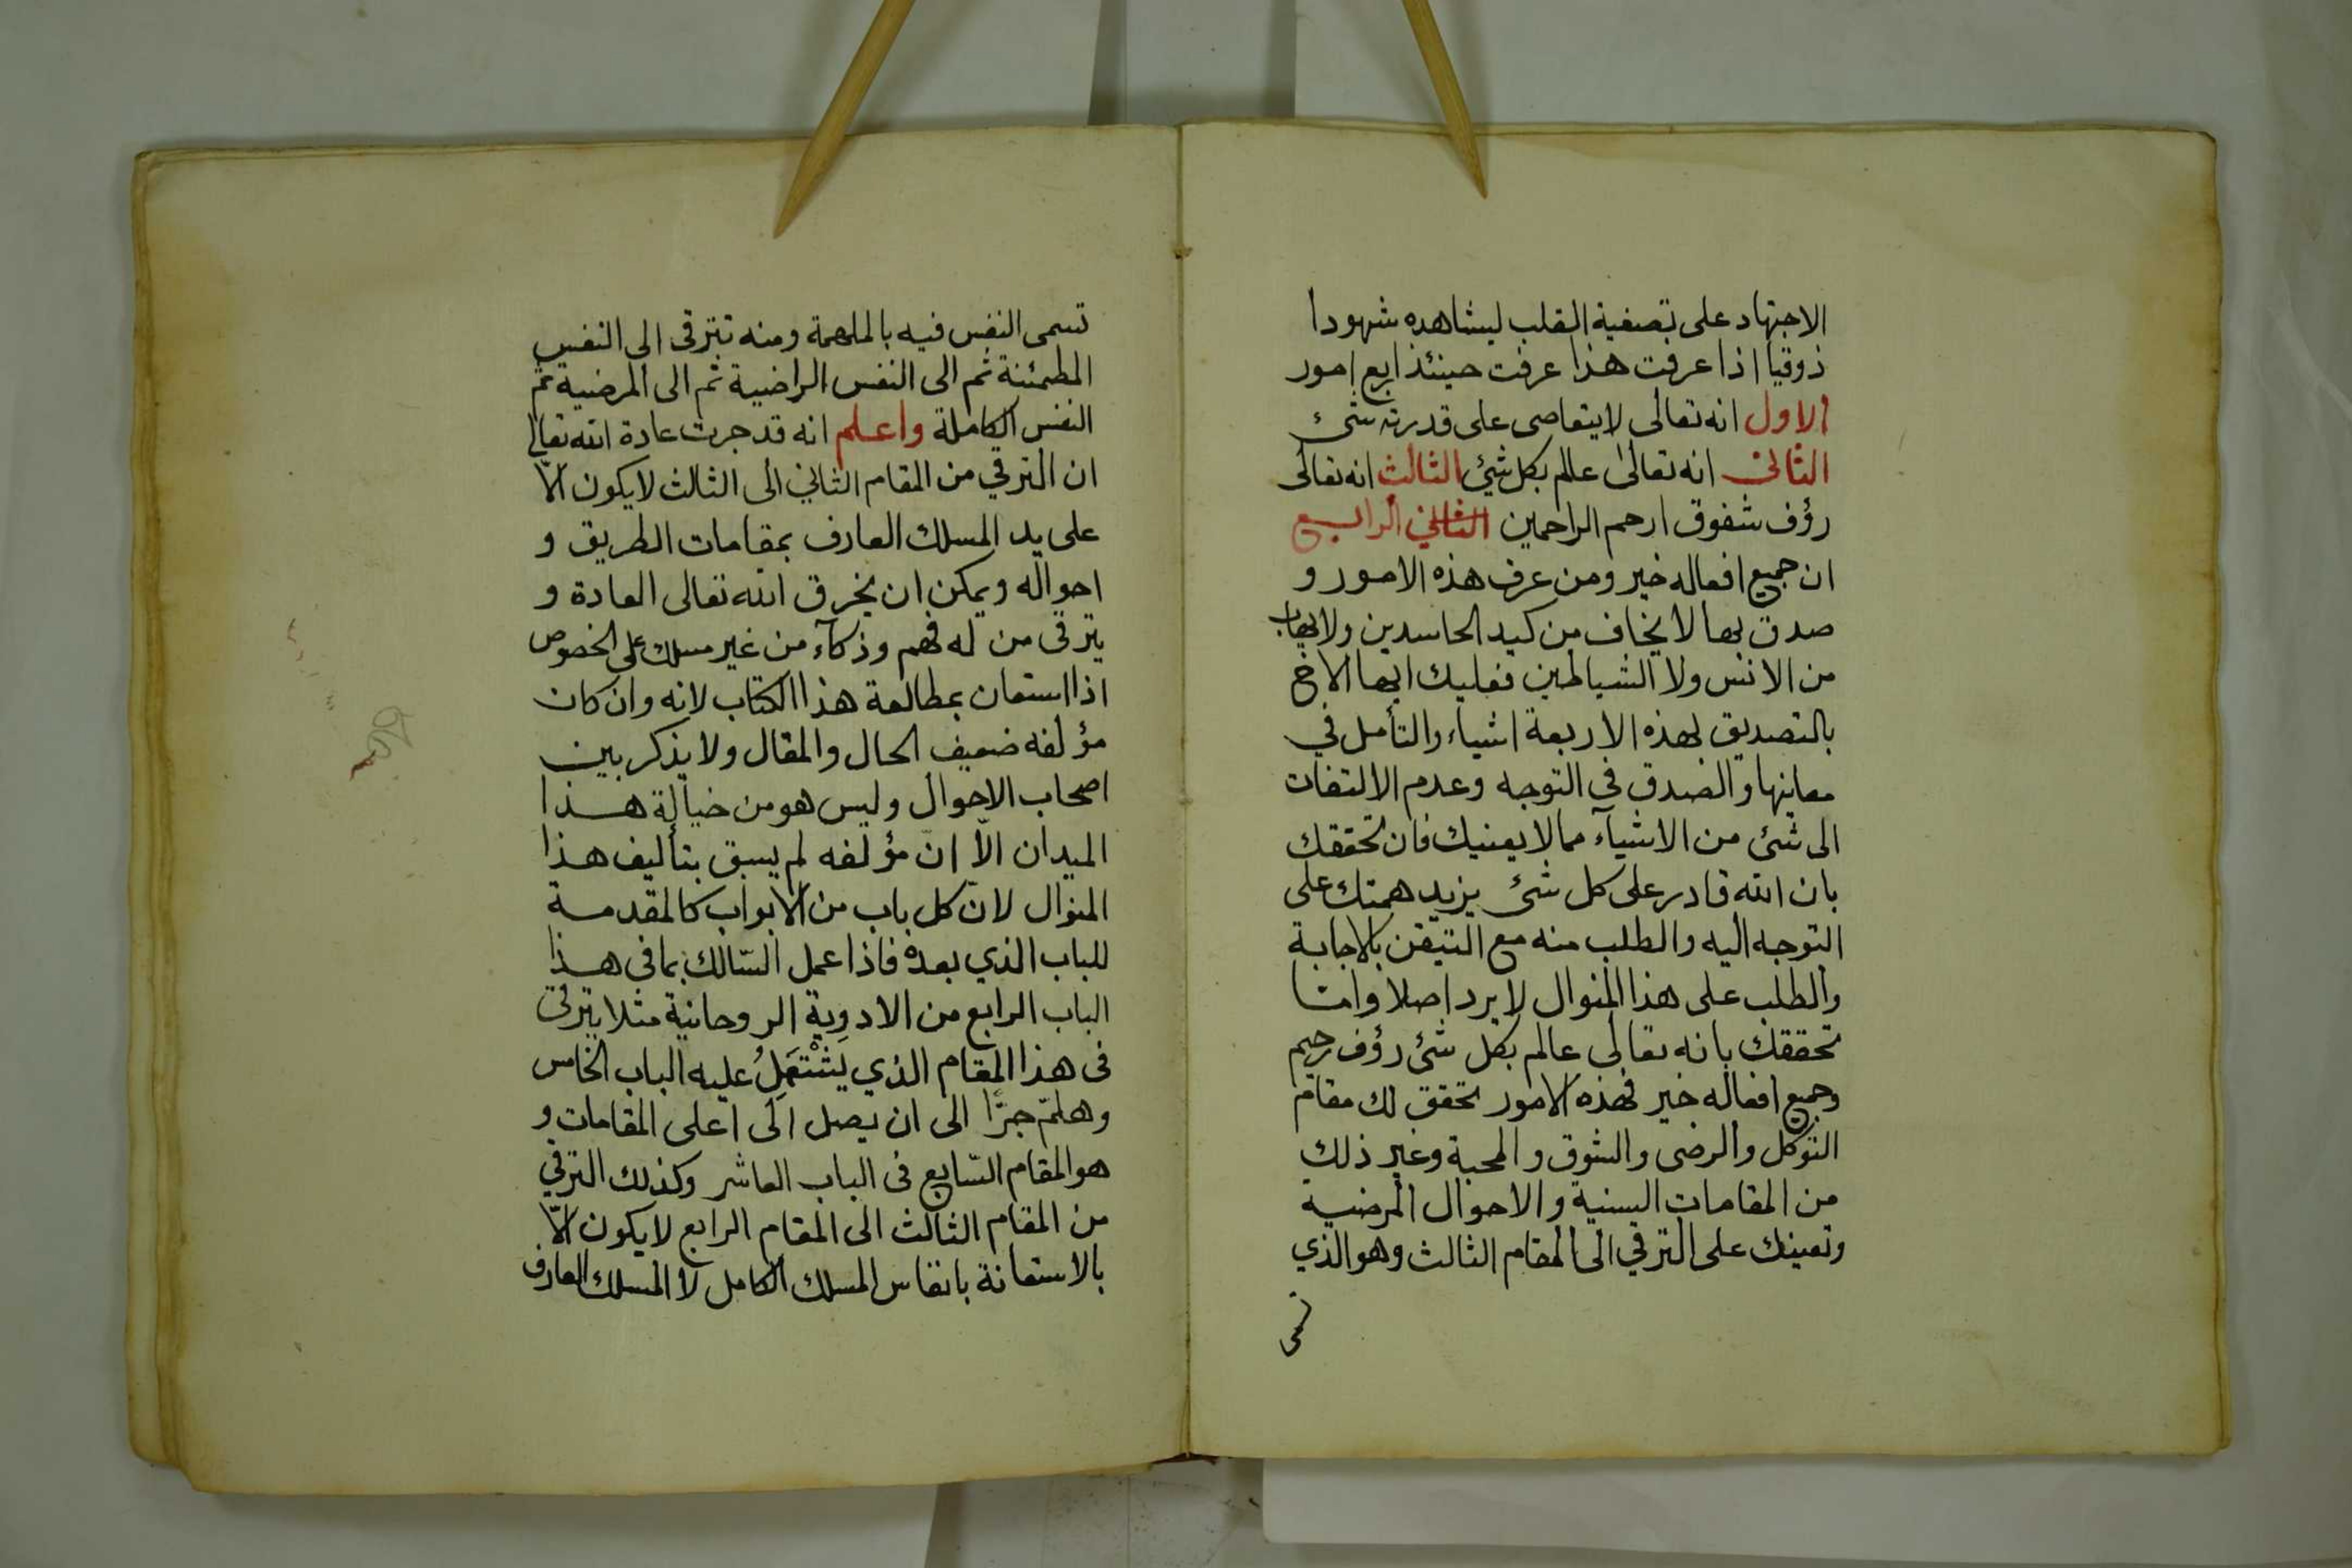 الاجتهاد على تصفية القلب ليشاهده شهودا
ذوقيا اذا عرفت هذا عرفت حينئذ اربع امور
الاول انه تعالى لا يتعاصى على قدرته شئ
الثانى انه تعالى عالم بكل شئ الثالث انه تعالى
رؤف شفوق ارحم الراحمين الثاني الرابع
ان جميع افعاله خير ومن عرف هذه الامور و
صدق بها لا يخاف من كيد الحاسدين ولا يهاب
من الانس ولا الشياطين فعليك ايها الاخ
بالتصديق لهذه الاربعة اشياء والتأمل في
معانيها والصدق في التوجه وعدم الالتفات
الى شئ من الاشيآء مما لا يعنيك فان تحققك
بان الله قادر على كل شئ يزيد همتك على
التوجه اليه والطلب منه مع التيقن بالاجابة
والطلب على هذا المنوال لا يرد اصلا وامّا
تحققك بانه تعالى عالم بكل شئ رؤف رحيم
وجميع افعاله خير فهذه الامور تحقق لك مقام
التوكل والرضى والشوق والمحبة وغير ذلك
من المقامات السنية والاحوال المرضية
وتعينك على الترقي الى المقام الثالث وهو الذي
تسمى
تسمى النفس فيه بالملهمة ومنه تترقى الى النفس
المطمئنة ثم الى النفس الراضية ثم الى المرضية ثم
النفس الكاملة واعلم انه قد جرت عادة الله تعالى
ان الترقي من المقام الثاني الى الثالث لا يكون الّا
على يد المسلك العارف بمقامات الطريق و
احواله ويمكن ان يخرق الله تعالى العادة و
يترقى من له فهم وذكآء من غير مسلك على الخصوص
اذا استعان بمطالعة هذا الكتاب لانه وان كان
مؤلفه ضعيف الحال والمقال ولا يذكر بين
اصحاب الاحوال وليس هو من خيالة هذا
الميدان الّا انّ مؤلفه لم يسبق بتأليف هذا
المنوال لانّ كل باب من الابواب كالمقدمة
للباب الذي بعده فاذا عمل السّالك بما فى هذا
الباب الرابع من الادوِية الروحانية مثلا يترقى
فى هذا المقام الذي يَشْتَمِلُ عليه الباب الخامس
وهلمّ جرًّا الى ان يصل الى اعلى المقامات و
هو المقام السّابع فى الباب العاشر وكذلك الترقي
من المقام الثالث الى المقام الرابع لا يكون الّا
بالاستعانة بانفاس المسلك الكامل لا المسلك العارف